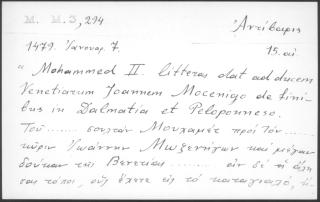 M. M. 3, 294
Ἀντίβαρις
1479. Ἰανουαρ. 7.
15. αἰ.
" Mohammed II. litteras dat ad ducem
Venetiarum Joannem Mocenigo de fini-
bus in Dalmatia et Peloponneso.
Τοῦ ........ σουλτὰν Μουχαμὲτ πρὸς τὸν .......
κύριν Ἰωάννην Μωζενῖγον καὶ μέγαν
δούκαν τῆς Βενετίας ....... δὲ ἡ ἄλλη
τόποι, οὓς ἔχετε εἰς τὸ